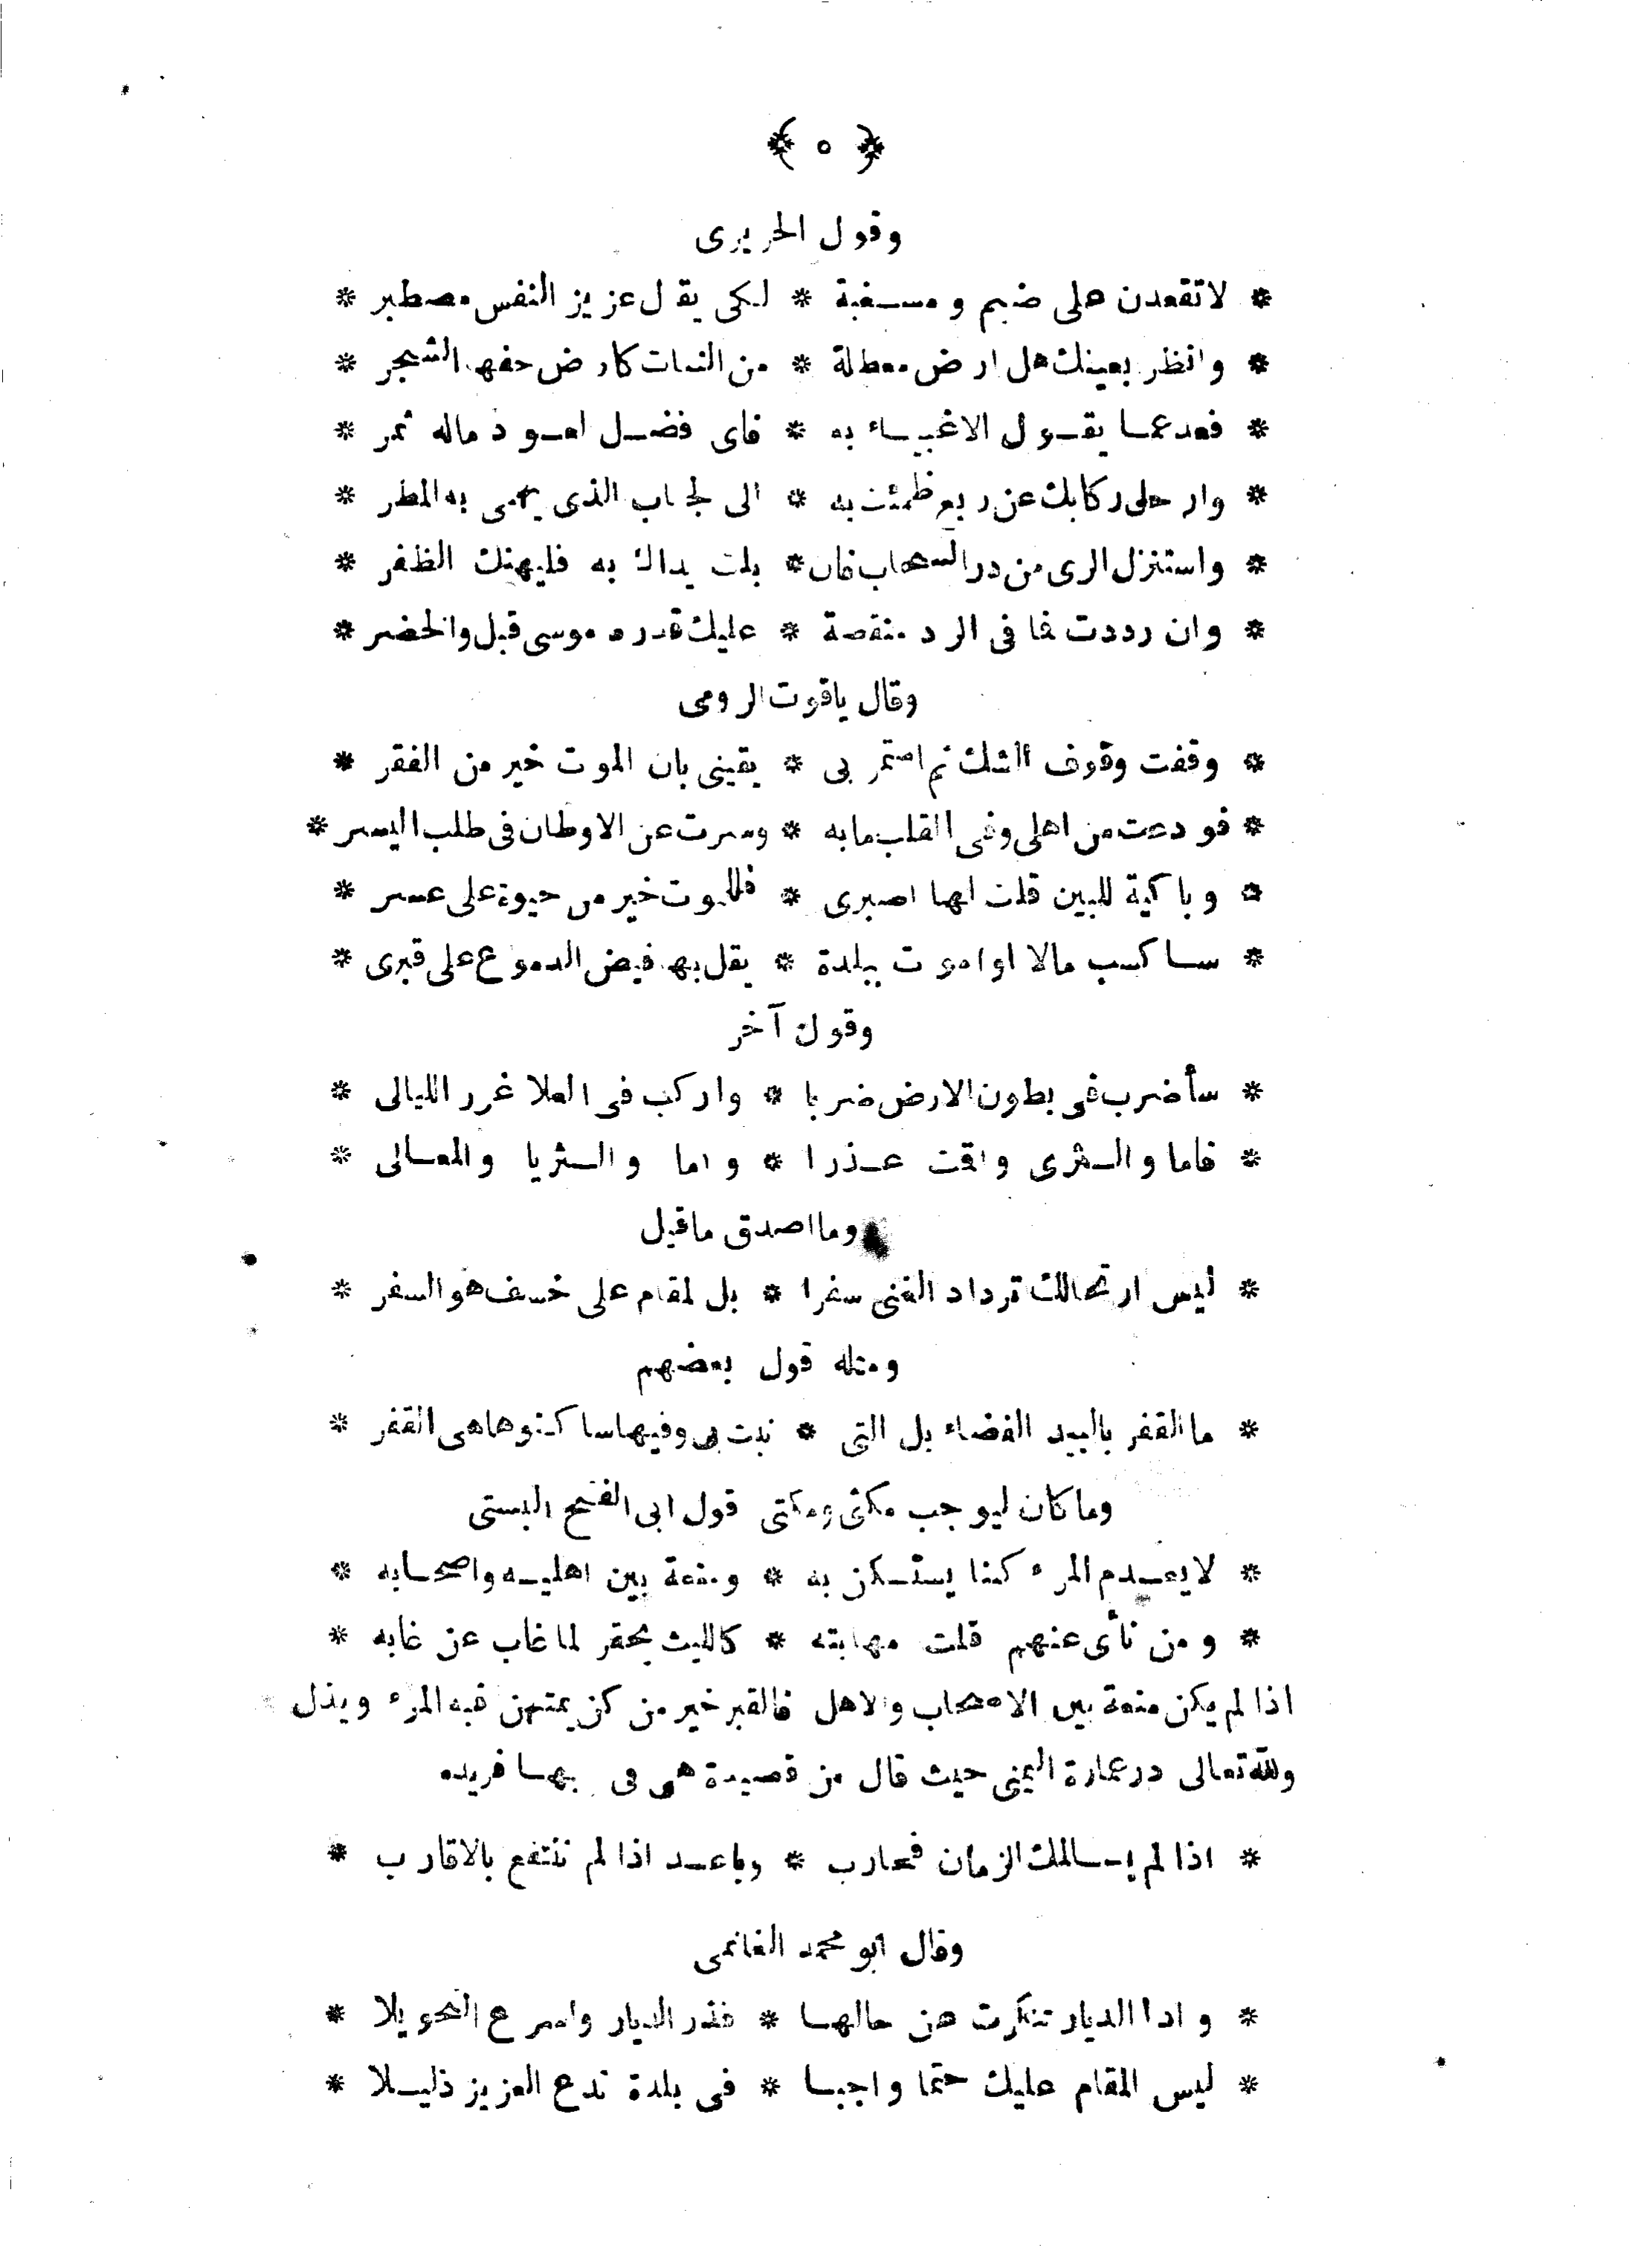 ﴿ ٥ ﴾
وقول الحريرى
* لاتقعدن على ضيم ومسغبة * لكى يقال عزيز النفس مصطبر *
* وانظر بعينك هل ارض معطلة * من النبات كارض حفها الشجر *
* فعد عما يقول الاغبياء به * فاى فضل لعود ماله ثمر *
* وارحل ركابك عن ربع ظمئت به * الى الجناب الذى يهمى به المطر *
* واستنزل الرى من در السحاب فان * بلت يداك به فليهنك الظفر *
* وان رددت فما فى الرد منقصة * عليك قدرد موسى قبل والخضر *
وقال ياقوت الرومى
* وقفت وقوف الشك ثم استمر بى * يقينى بان الموت خير من الفقر *
* فودعت من اهلى وفى القلب مابه * وسرت عن الاوطان فى طلب اليسر *
* وباكية للبين قلت لها اصبرى * فللموت خير من حيوة على عسر *
* ساكسب مالا او اموت ببلدة * يقل بها فيض الدموع على قبرى *
وقول آخر
* سأضرب فى بطون الارض ضربا * واركب فى العلا غرر الليالى *
* فاما والثرى واقت عذرا * واما والثريا والمعالى *
وما اصدق ماقيل
* ليس ارتحالك ترداد الغنى سفرا * بل لمقام على خسف هو السفر *
ومثله قول بعضهم
* ما القفر بالبيد الفضاء بل التى * نبت بى وفيها ساكنوها هى القفر *
وما كان ليوجب مكثى ومكنتى قول ابى الفتح البستى
* لايعدم المرء كنا يستكن به * ومنعة بين اهليه واصحابه *
* ومن نأى عنهم قلت مهابته * كالليث يحقر لما غاب عن غابه *
اذا لم يكن منعة بين الاصحاب والاهل فالقبر خير من كن يمتهن فيه المرء ويذل
ولله تعالى در عمارة اليمنى حيث قال من قصيدة هى فى بها فريده
* اذا لم يسالمك الزمان فحارب * وباعد اذا لم تنتفع بالاقارب *
وقال ابو محمد الغانمى
* واذا الديار تنكرت عن حالها * فذر الديار واسرع التحويلا *
* ليس المقام عليك حتما واجبا * فى بلدة تدع العزيز ذليلا *